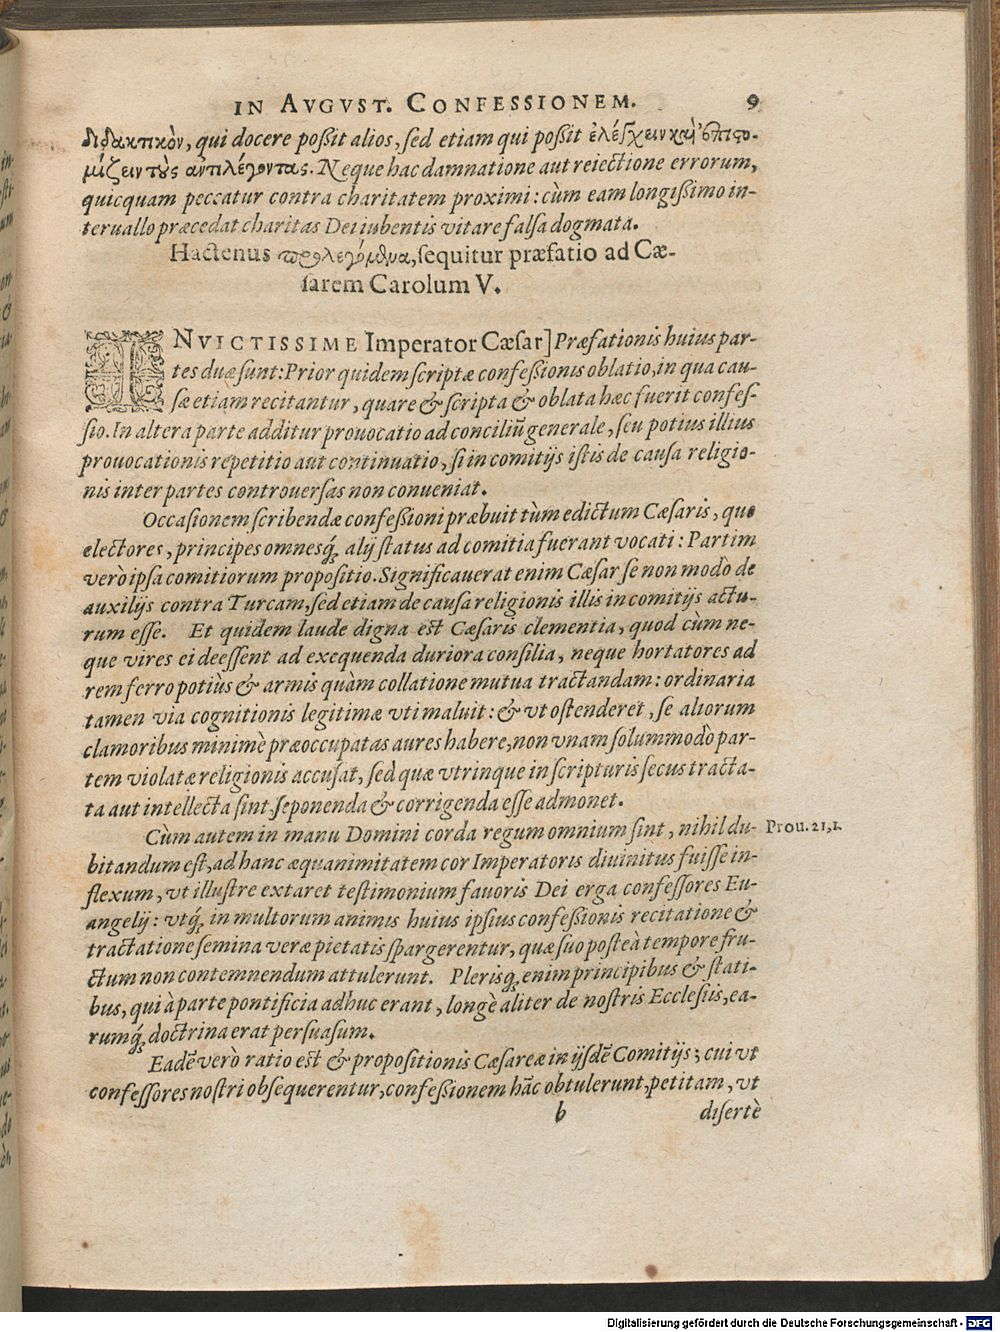 IN AVGVST. CONFESSIONEM. 9
διδακτικὸν, qui docere poßit alios, sed etiam qui poßit ἐλέγχειν καὶ ἐπιστο-
μίζειν τοὺς ἀντιλέγοντας. Neque hac damnatione aut reiectione errorum,
quicquam peccatur contra charitatem proximi: cùm eam longißimo in-
teruallo præcedat charitas Dei iubentis vitare falsa dogmata.
Hactenus προλεγόμενα, sequitur præfatio ad Cæ-
sarem Carolum V.
INVICTISSIME Imperator Cæsar] Præfationis huius par-
tes duæ sunt: Prior quidem scriptæ confeßionis oblatio, in qua cau-
sæ etiam recitantur, quare & scripta & oblata hæc fuerit confes-
sio. In altera parte additur prouocatio ad conciliũ generale, seu potius illius
prouocationis repetitio aut continuatio, si in comitijs istis de causa religio-
nis inter partes controuersas non conueniat.
Occasionem scribendæ confeßioni præbuit tùm edictum Cæsaris, quo
electores, principes omnesq́; alij status ad comitia fuerant vocati: Partim
verò ipsa comitiorum propositio. Significauerat enim Cæsar se non modò de
auxilijs contra Turcam, sed etiam de causa religionis illis in comitijs actu-
rum esse. Et quidem laude digna est Cæsaris clementia, quod cùm ne-
que vires ei deessent ad exequenda duriora consilia, neque hortatores ad
rem ferro potiùs & armis quàm collatione mutua tractandam: ordinaria
tamen via cognitionis legitimæ vti maluit: & vt ostenderet, se aliorum
clamoribus minimè præoccupatas aures habere, non vnam solummodò par-
tem violatæ religionis accusat, sed quæ vtrinque in scripturis secus tracta-
ta aut intellecta sint, seponenda & corrigenda esse admonet.
Cùm autem in manu Domini corda regum omnium sint, nihil du- Prou. 21, 1.
bitandum est, ad hanc æquanimitatem cor Imperatoris diuinitus fuisse in-
flexum, vt illustre extaret testimonium fauoris Dei erga confessores Eu-
angelij: vtq́; in multorum animis huius ipsius confeßionis recitatione &
tractatione semina veræ pietatis spargerentur, quæ suo posteà tempore fru-
ctum non contemnendum attulerunt. Plerisq; enim principibus & stati-
bus, qui à parte pontificia adhuc erant, longè aliter de nostris Ecclesiis, ea-
rumq́; doctrina erat persuasum.
Eadẽ verò ratio est & propositionis Cæsareæ in ijsdẽ Comitijs; cui vt
confessores nostri obsequerentur, confeßionem hãc obtulerunt petitam, vt
b disertè
Digitalisierung gefördert durch die Deutsche Forschungsgemeinschaft - DFG